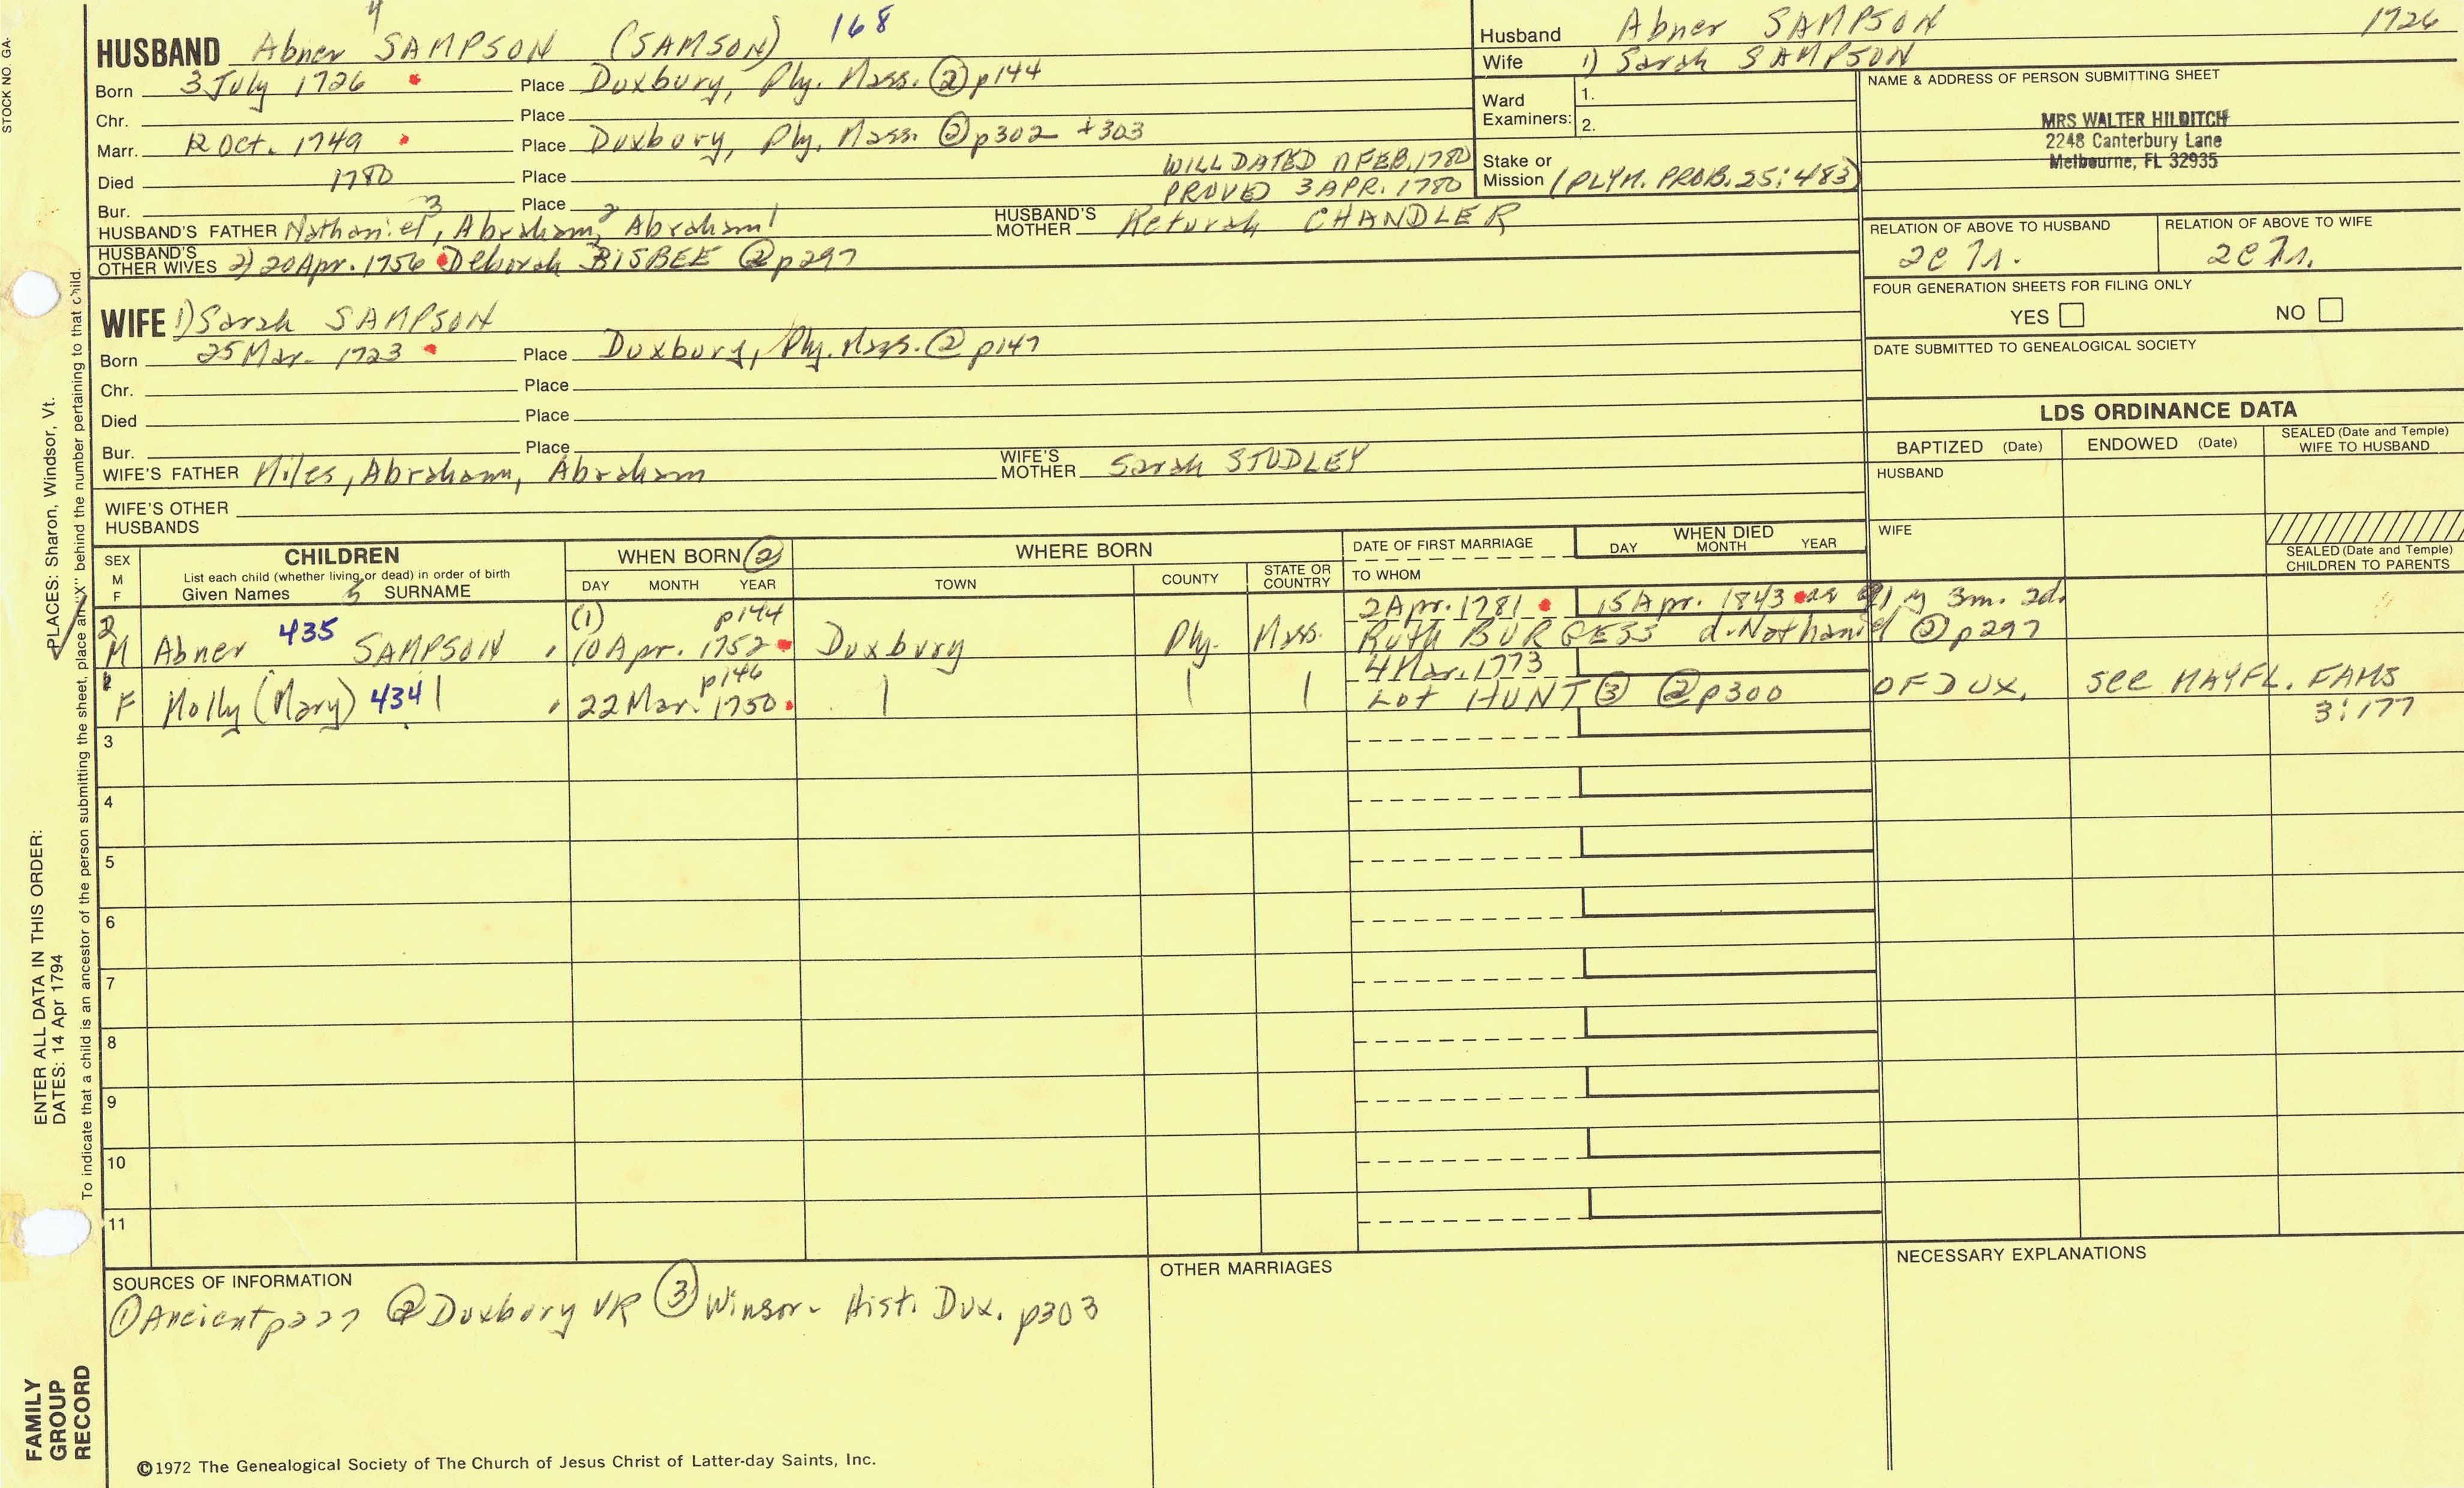 4
HUSBAND Abner SAMPSON (SAMSON) 168
Born 3 July 1726 Place Duxbury, Ply. Mass. ② p144
Chr. Place
Marr. 12 Oct. 1749 Place Duxbury, Ply. Mass. ② p302 +303
Died 1780 Place
WILL DATED FEB. 1780
PROVED 3 APR. 1780
(PLYM. PROB. 25:483)
Bur. Place
HUSBAND'S FATHER Nathaniel 3, Abraham 2, Abraham 1
HUSBAND'S MOTHER Keturah CHANDLER
HUSBAND'S OTHER WIVES 2) 20 Apr. 1756 Deborah BISBEE ② p297
WIFE 1) Sarah SAMPSON
Born 25 Mar. 1723 Place Duxbury, Ply. Mass. ② p147
Chr. Place
Died Place
Bur. Place
WIFE'S FATHER Miles, Abraham, Abraham
WIFE'S MOTHER Sarah STUDLEY
WIFE'S OTHER HUSBANDS
Husband Abner SAMPSON 1726
Wife 1) Sarah SAMPSON
Ward Examiners: 1.
2.
Stake or Mission
NAME & ADDRESS OF PERSON SUBMITTING SHEET
MRS WALTER HILDITCH
2248 Canterbury Lane
Melbourne, FL 32935
RELATION OF ABOVE TO HUSBAND
RELATION OF ABOVE TO WIFE
FOUR GENERATION SHEETS FOR FILING ONLY
YES NO
DATE SUBMITTED TO GENEALOGICAL SOCIETY
LDS ORDINANCE DATA
BAPTIZED (Date) ENDOWED (Date) SEALED (Date and Temple) WIFE TO HUSBAND
HUSBAND
WIFE
SEALED (Date and Temple) CHILDREN TO PARENTS
SEX M F
CHILDREN
List each child (whether living or dead) in order of birth
Given Names 5 SURNAME
WHEN BORN ②
DAY MONTH YEAR
WHERE BORN
TOWN COUNTY STATE OR COUNTRY
DATE OF FIRST MARRIAGE
TO WHOM
WHEN DIED
DAY MONTH YEAR
2 (1) p144 2 Apr. 1781 15 Apr. 1843 ae 91 y 3m. 2d.
M Abner 435 SAMPSON 10 Apr. 1752 Duxbury Ply. Mass. Ruth BURGESS d. Nathaniel ② p297
1 p146 4 Mar. 1773
F Molly (Mary) 434 22 Mar. 1750 Lot HUNT ③ ② p300 OF DUX. See MAYFL. FAMS
3:177
3
4
5
6
7
8
9
10
11
SOURCES OF INFORMATION
① Ancient p227 ② Duxbury VR ③ Winsor - Hist. Dux. p303
OTHER MARRIAGES
NECESSARY EXPLANATIONS
©1972 The Genealogical Society of The Church of Jesus Christ of Latter-day Saints, Inc.
STOCK NO GA-
PLACES: Sharon, Windsor, Vt.
ENTER ALL DATA IN THIS ORDER:
DATES: 14 Apr 1794
To indicate that a child is an ancestor of the person submitting the sheet, place an "X" behind the number pertaining to that child.
FAMILY
GROUP
RECORD